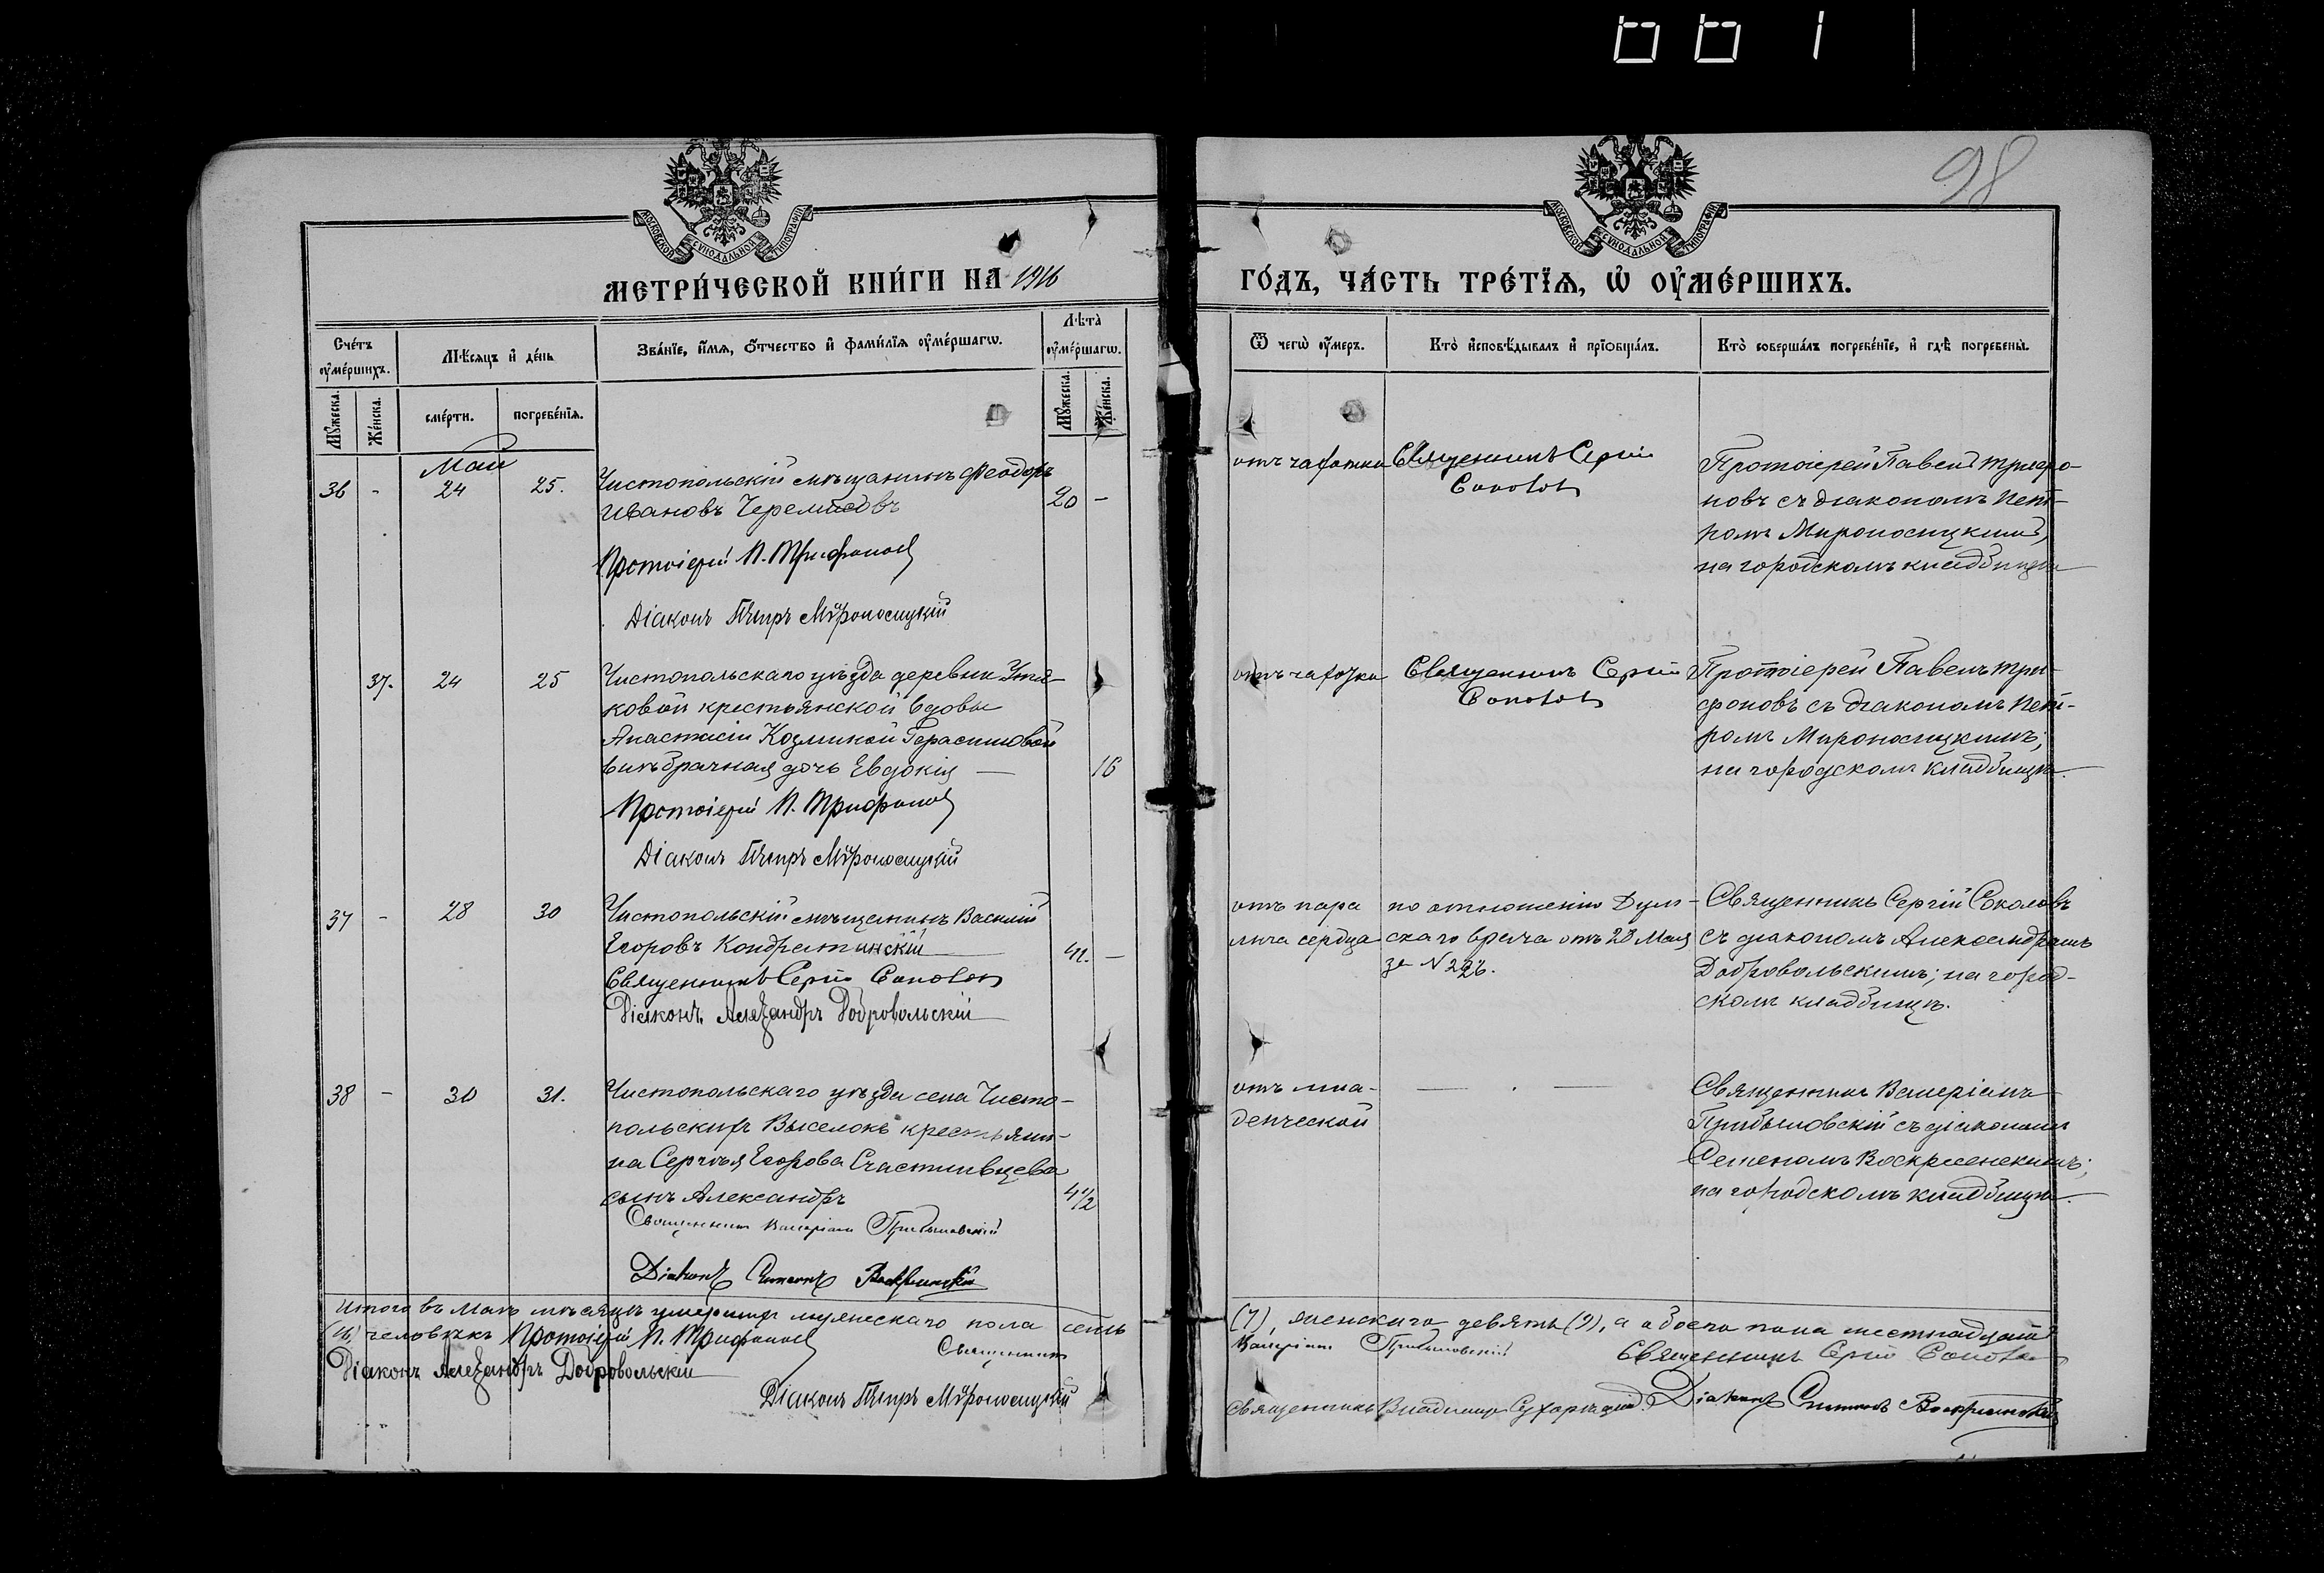 98
МОСКОВСКОЙ СѴНОДАЛЬНОЙ ТИПОГРАФІИ
МОСКОВСКОЙ СѴНОДАЛЬНОЙ ТИПОГРАФІИ
МЕТРИ́ЧЕСКОЙ КНИ́ГИ НА 1916
ГО́ДЪ, ЧА́СТЬ ТРЕ́ТЇѦ, Ѡ҆ ОУ҆МЕ́РШИХЪ.
Сче́тъ оу҆ме́ршихъ.
Мѣ́сяцъ и҆ де́нь
Зва́нїе, и҆́мѧ, ѻ҆́тчество и҆ фами́лїѧ оу҆ме́ршагѡ.
Лѣта̀ оу҆ме́ршагѡ.
Ѿ чегѡ̀ оу҆́меръ.
Кто̀ и҆сповѣ́дывалъ и҆ прїобща́лъ.
Кто̀ соверша́лъ погребе́нїе, и҆ гдѣ̀ погребены̀.
Мꙋ́жеска.
Же́нска.
сме́рти.
погребе́нїѧ.
Мꙋ́жеска.
Же́нска.
Май
36 - 24 25.
Чистопольскій мѣщанинъ Феодоръ
Ивановъ Черемисовъ
20 -
Протоіерей П. Трифоновъ
Діаконъ Петръ Мѵроносицкій
отъ чахотки
Священникъ Сергій
Соколовъ
Протоіерей Павелъ Трифо-
новъ съ діакономъ Пет-
ромъ Мироносицкимъ,
на городскомъ кладбищѣ
37. 24 25
Чистопольскаго уѣзда деревни
ковой крестьянской вдовы
Анастасіи Козминой Герасимовой
внѣбрачная дочь Евдокія
16
Протоіерей П. Трифоновъ
Діаконъ Петръ Мѵроносицкій
отъ чахотки
Священникъ Сергій
Соколовъ
Протоіерей Павелъ Три-
фоновъ съ діакономъ Пет-
ромъ Мироносицкимъ;
на городскомъ кладбищѣ.
37 - 28 30
Чистопольскій мѣщанинъ Василій
Егоровъ Кондратинскій
41. -
Священникъ Сергій Соколовъ
Діаконъ Александръ Добровольскій
отъ пара
лича сердца
по отношенію Дум-
скаго врача отъ 28 Мая
за N 226.
Священникъ Сергій Соколовъ
съ діакономъ Александромъ
Добровольскимъ; на город-
скомъ кладбищѣ.
38 - 30 31.
Чистопольскаго уѣзда села Чисто-
польскихъ Выселокъ крестьяни-
на Сергѣя Егорова Счастливцева
сынъ Александръ
4 1/2
Священникъ Валеріанъ Прибыловскій
Діаконъ Симеонъ Воскресенскій
отъ мла-
денческой
Священникъ Валеріанъ
Прибыловскій съ діакономъ
Семеномъ Воскресенскимъ;
на городскомъ кладбищѣ.
Итого въ Маѣ мѣсяцѣ умершихъ мужескаго пола семь
(7), женскаго девять (9), а обоего пола шестнадцать
(16) человѣкъ Протоіерей П. Трифоновъ
Священникъ
Валеріанъ Прибыловскій
Священникъ Сергій Соколовъ
Діаконъ Александръ Добровольскій
Діаконъ Петръ Мѵроносицкій
Священникъ Владимиръ
Діаконъ Симеонъ Воскресенскій